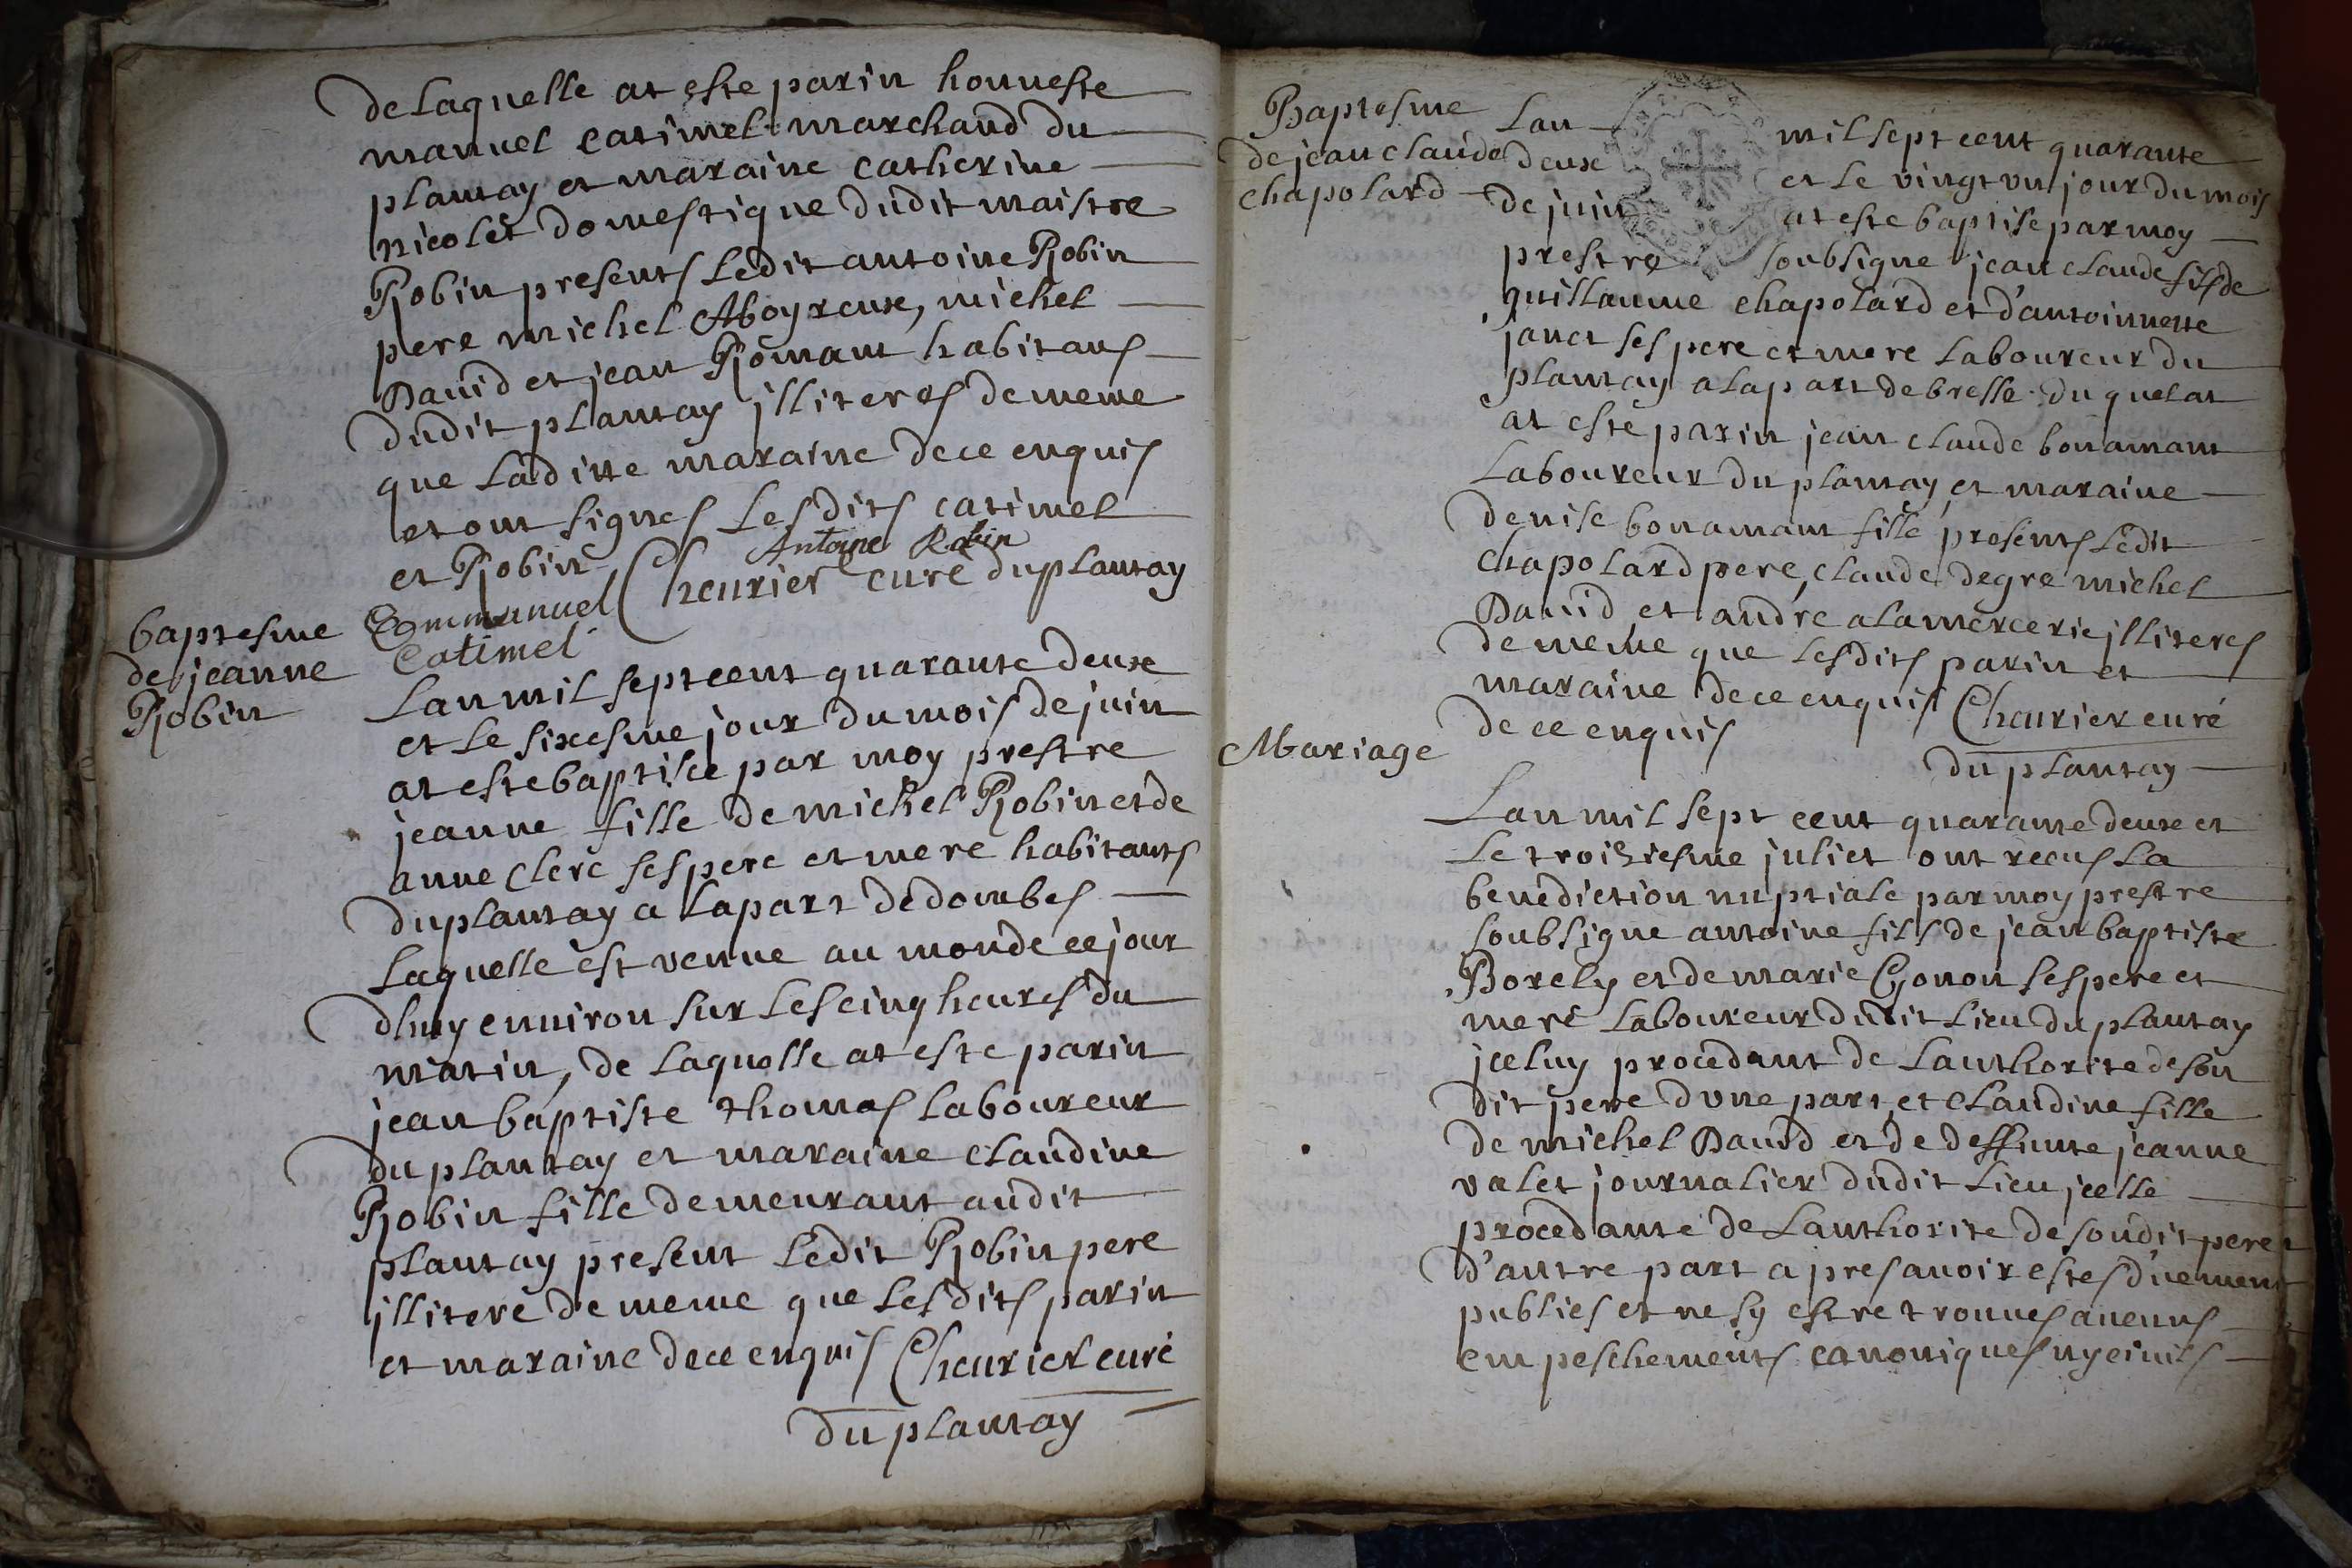 de laquelle at este parin honneste
manuel catimel marchand du
plantay et maraine catherine
nicolet domestique dudit maistre
Robin presents ledit antoine Robin
pere michel Aboyreux, michel
David et jean Romant habitans
dudit plantay illiteres de meme
que laditte maraine de ce enquis
et ont signes lesdits catimel
et Robin Antoine Robin
Chevrier curé du plantay
Emmanuel
Catimel
baptesme
de jeanne
Robin
Lan mil sept cent quarante deux
et le sixesme jour du mois de juin
at este baptisée par moy prestre
jeanne fille de michel Robin et de
anne Clerc ses pere et mere habitants
du plantay a la part de dombes
laquelle est venue au monde ce jour
dhuy environ sur les cinq heures du
matin, de laquelle at este parin
jean baptiste thomas laboureur
du plantay et maraine claudine
Robin fille demeurant audit
plantay present ledit Robin pere
illiteré de meme que lesdits parin
et maraine de ce enquis Chevrier curé
du plantay
Baptesme
de jean claude
chapolard
Lan mil sept cent quarante
deux et le vingt un jour du mois
de juin at este baptise par moy
prestre soubsigne jean claude fils de
guillaume chapolard et d'antoinette
janet ses pere et mere laboureur du
plantay a la part de bresse duquel at
at esté parin jean claude bonamant
laboureur du plantay, et maraine
denise bonamant fille presents ledit
chapolard pere, claude degre michel
David et andré alamercerie illiteres
de meme que lesdits parin et
maraine de ce enquis Chevrier curé
de ce enquis
du plantay
Mariage
Lan mil sept cent quarante deux et
le troiziesme juliet ont receus la
benediction nuptiale par moy prestre
soubsigne antoine fils de jean baptiste
Borely et de marie Gonon ses pere et
mere laboureur dudit lieu du plantay
iceluy procedant de lauthorite de son
dit pere dune part, et claudine fille
de michel David et de deffunte jeanne
valet journalier dudit lieu icelle
procedante de lauthorite de sondit pere
d'autre part apres avoir estes d'uement
publies et ne sy estre trouves aucuns
empeschements canoniques ny civils